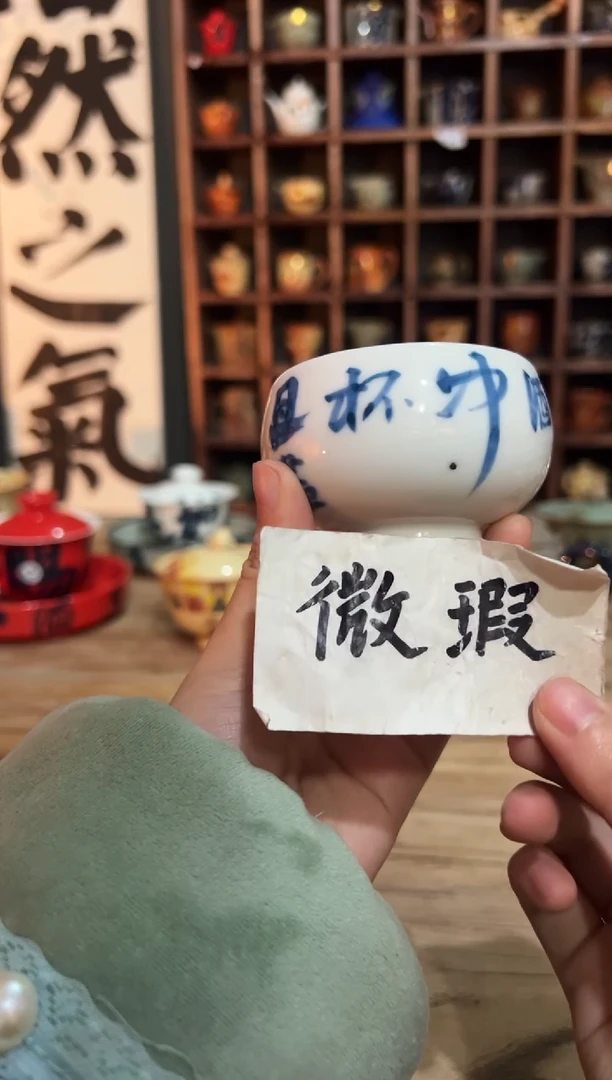 然之氣
中杯且
微瑕